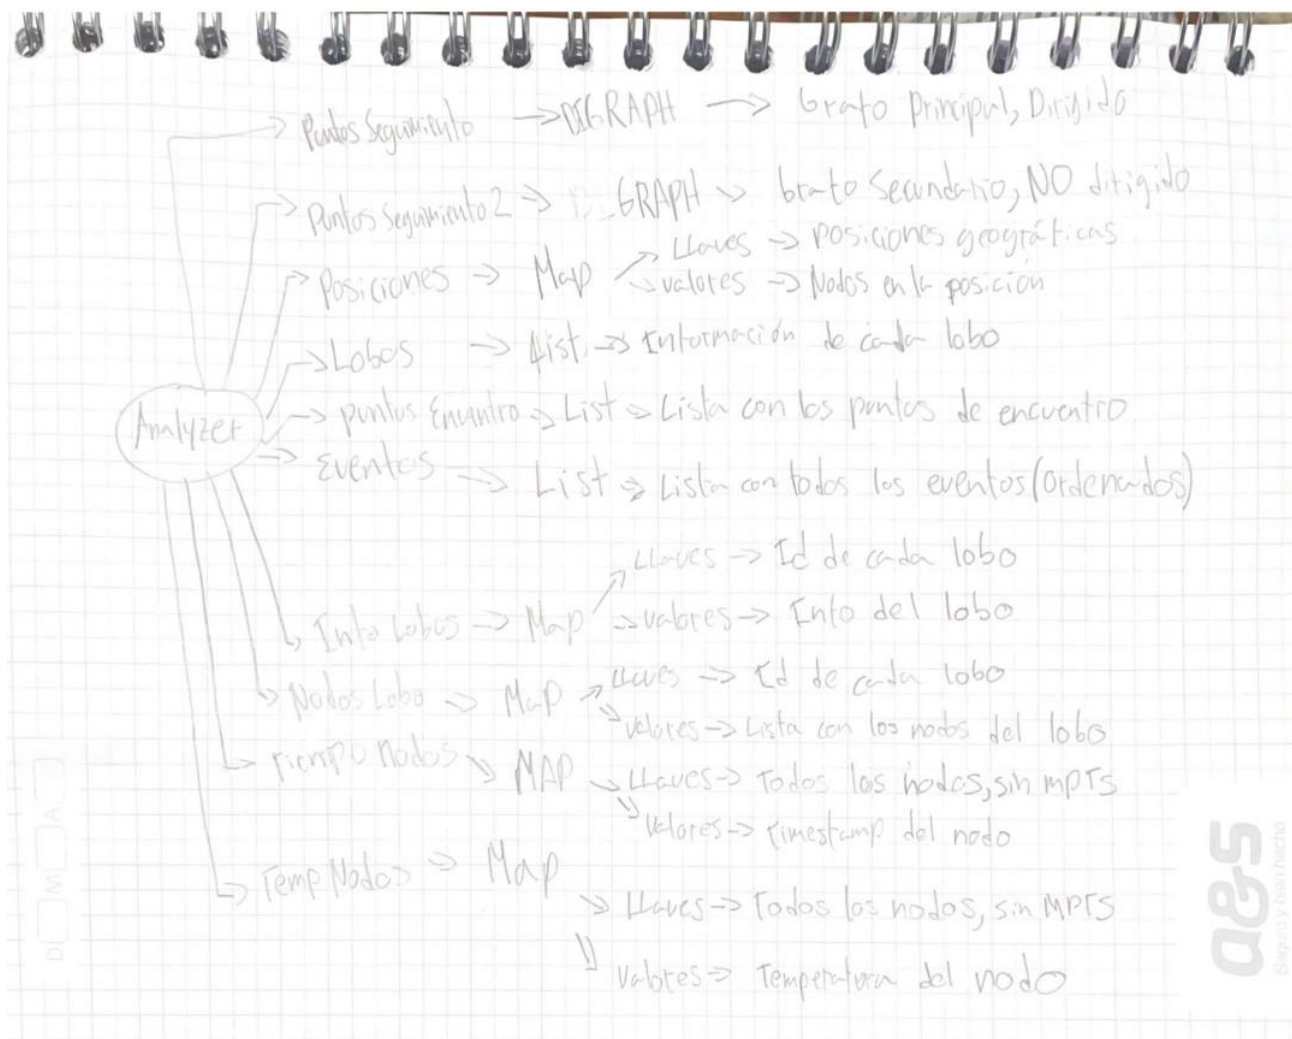 Puntos Seguimiento → DIGRAPH → Grafo Principal, Dirigido
Puntos Seguimiento 2 → GRAPH → Grafo Secundario, NO dirigido
Posiciones → Map
Llaves → Posiciones geográficas
valores → Nodos en la posición
Lobos → List → Información de cada lobo
Analyzer
puntos Encuntro → List → Lista con los puntos de encuentro
Eventos → List → Lista con todos los eventos (ordenados)
Info Lobos → Map
Llaves → Id de cada lobo
valores → Info del lobo
Nodos Lobo → Map
Llaves → Id de cada lobo
valores → Lista con los nodos del lobo
Tiempo Nodos → MAP
Llaves → Todos los nodos, sin MPTS
Valores → Timestamp del nodo
Temp Nodos → Map
Llaves → Todos los nodos, sin MPTS
Valores → Temperatura del nodo
D M A
a&s
Seguro y bien hecho